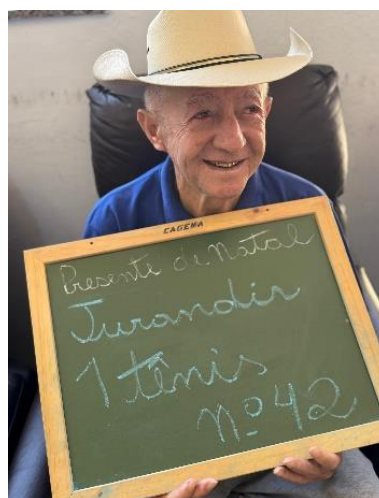 CAGEMA
Presente de Natal
Jurandir
1 tênis
nº 42